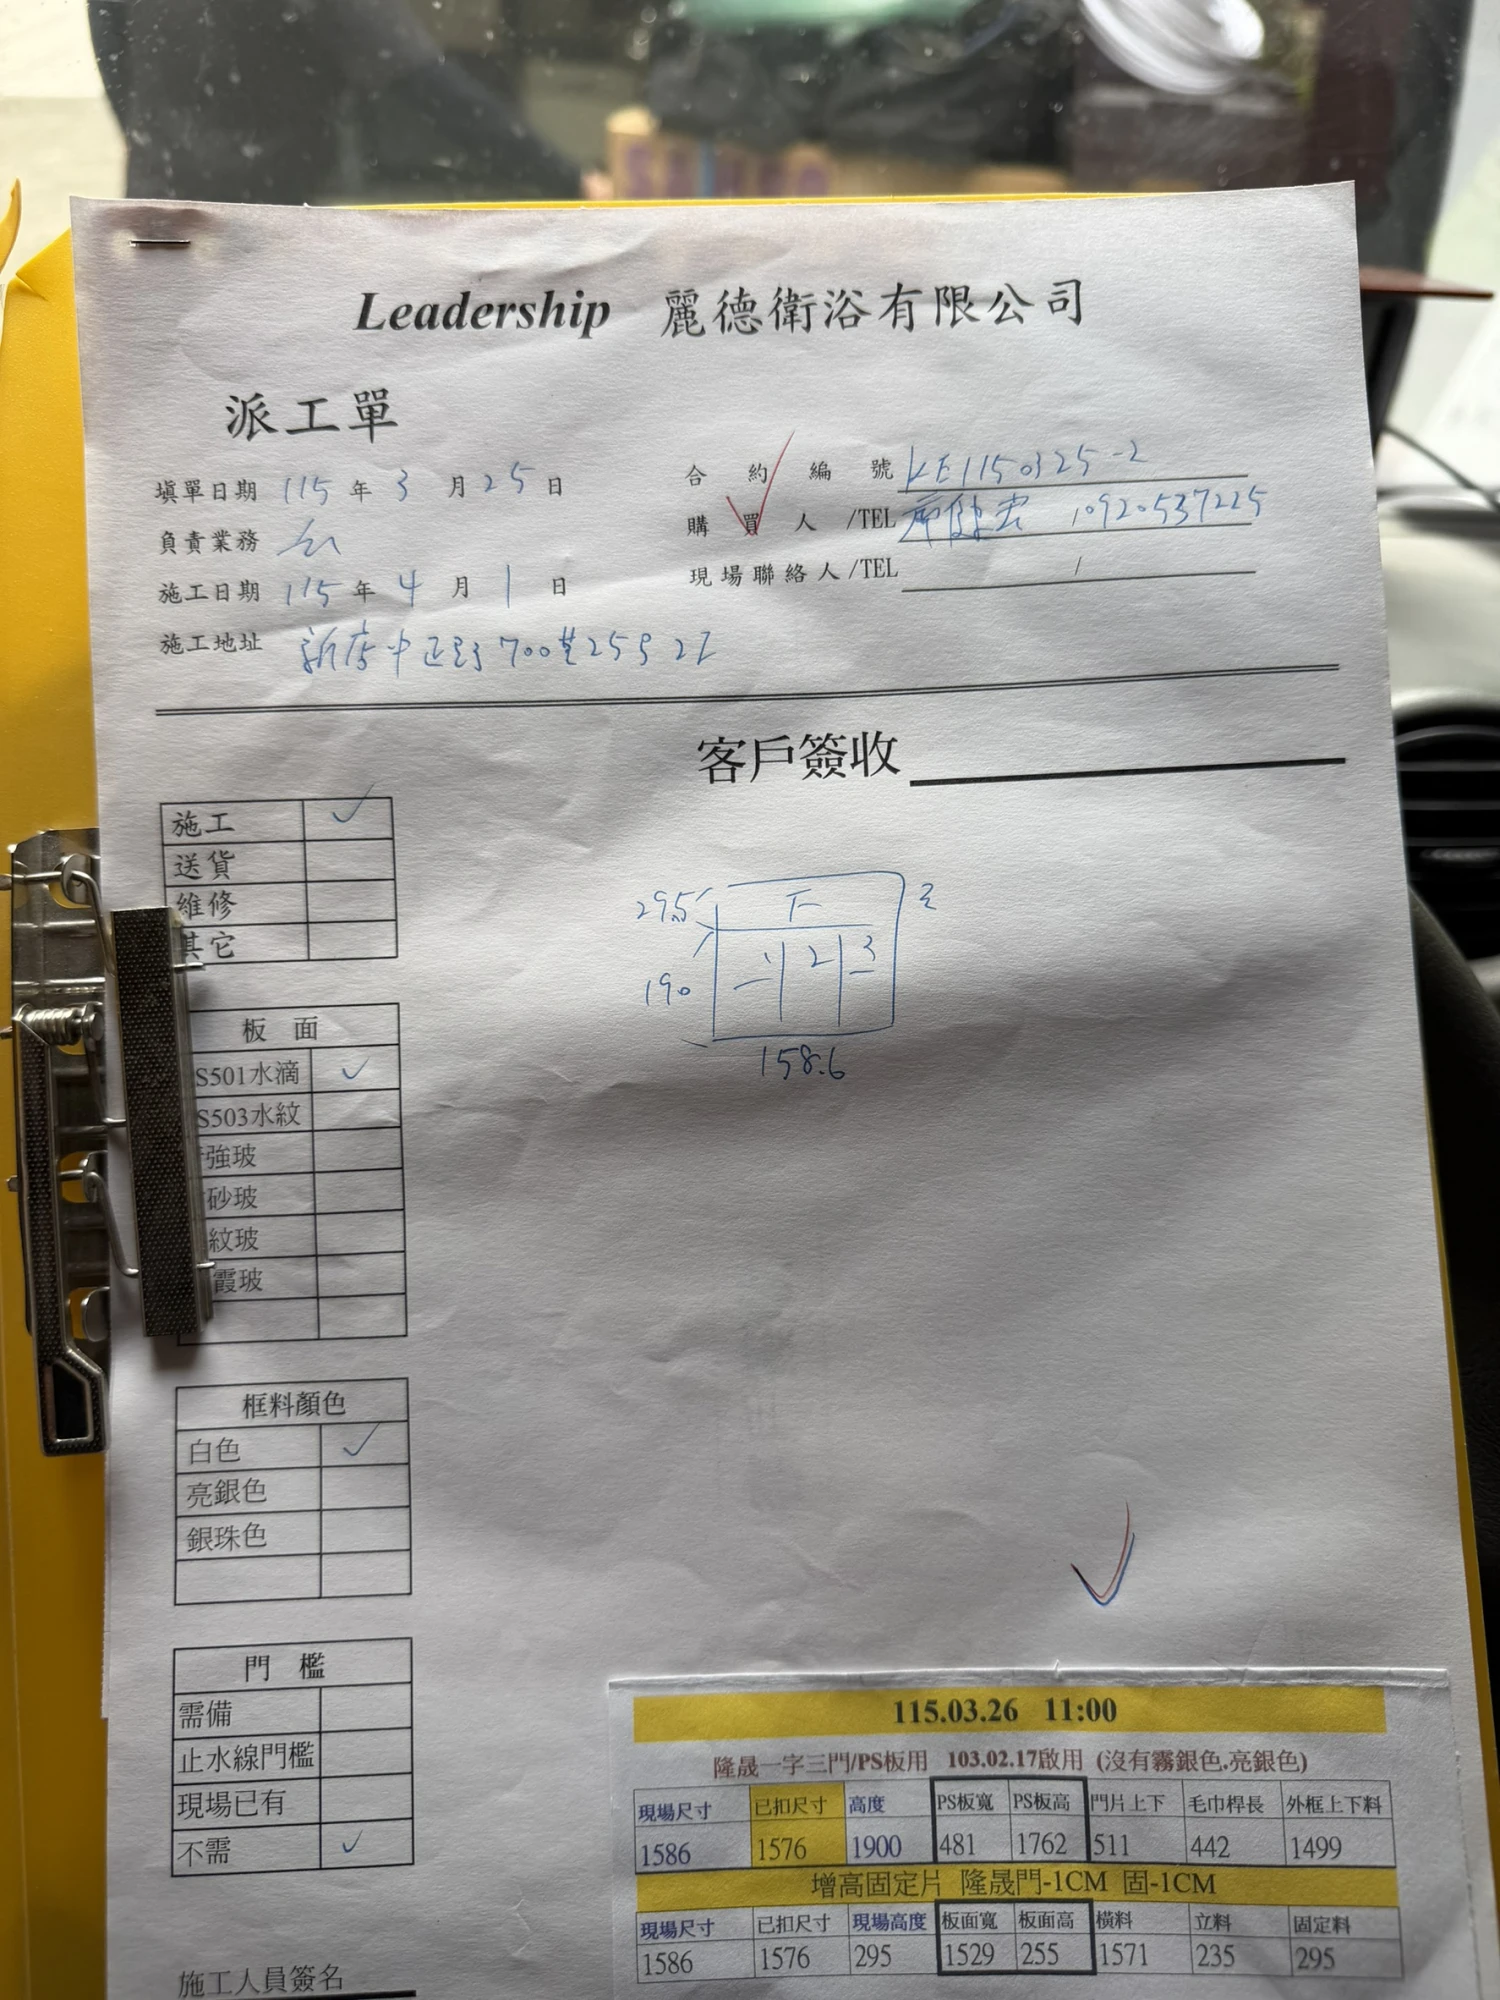 Leadership 麗德衛浴有限公司
派工單
填單日期 115 年 3 月 25 日
合約編號 KE1150325-2
負責業務
購買人/TEL /0920537225
施工日期 115 年 4 月 1 日
現場聯絡人/TEL /
施工地址 新店中正路700巷25号2F
客戶簽收
施工 ✓
送貨
維修
其它
29.5
190
1 2 3
158.6
板面
S501水滴 ✓
S503水紋
強玻
砂玻
紋玻
霞玻
框料顏色
白色 ✓
亮銀色
銀珠色
門檻
需備
止水線門檻
現場已有
不需 ✓
施工人員簽名
115.03.26 11:00
隆晟一字三門/PS板用 103.02.17啟用 (沒有霧銀色.亮銀色)
現場尺寸 已扣尺寸 高度 PS板寬 PS板高 門片上下 毛巾桿長 外框上下料
1586 1576 1900 481 1762 511 442 1499
增高固定片 隆晟門-1CM 固-1CM
現場尺寸 已扣尺寸 現場高度 板面寬 板面高 橫料 立料 固定料
1586 1576 295 1529 255 1571 235 295